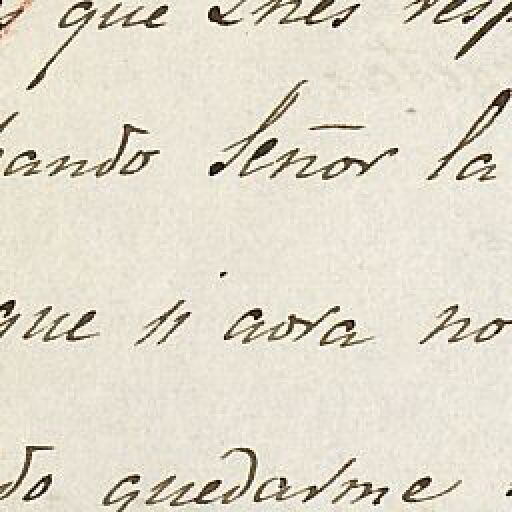 que Ines resp
ando Señor la
que si aora no
do quedarme